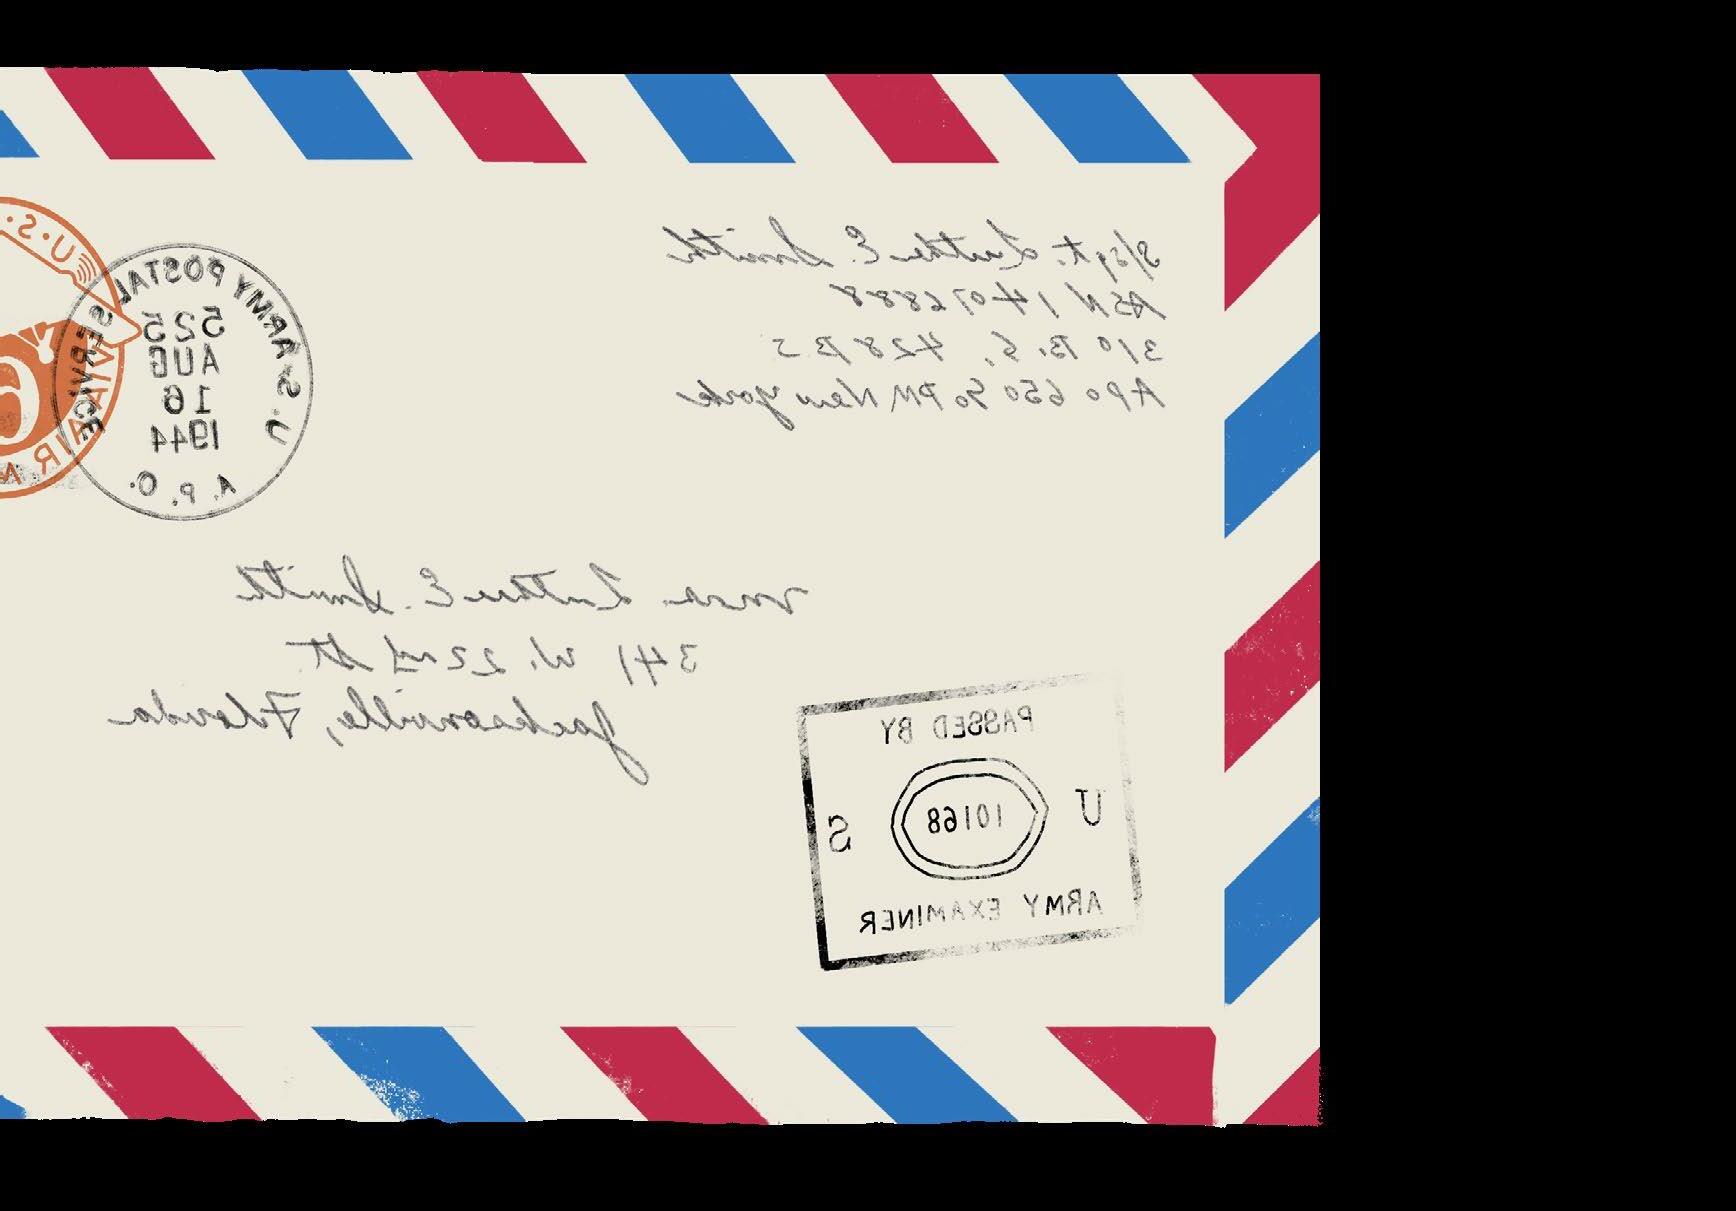 S/Sgt. Luther E. Smith
ASN 14076888
310 B.G. 428 B S
APO 650 % PM New York
U.S.
AIR
U.S. ARMY POSTAL SERVICE
525
AUG
16
1944
A.P.O.
6
Mrs. Luther E. Smith
341 W. 22nd St.
Jacksonville, Florida
PASSED BY
U 10168 S
ARMY EXAMINER